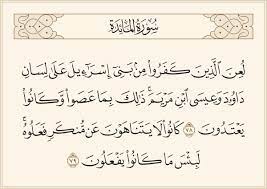 سُورَةُ المَائِدَةِ
لُعِنَ الَّذِينَ كَفَرُوا مِنْ بَنِي إِسْرَائِيلَ عَلَى لِسَانِ
دَاوُودَ وَعِيسَى ابْنِ مَرْيَمَ ۚ ذَٰلِكَ بِمَا عَصَوا وَّكَانُوا
يَعْتَدُونَ ﴿٧٨﴾ كَانُوا لَا يَتَنَاهَوْنَ عَنْ مُنكَرٍ فَعَلُوهُ ۚ
لَبِئْسَ مَا كَانُوا يَفْعَلُونَ ﴿٧٩﴾